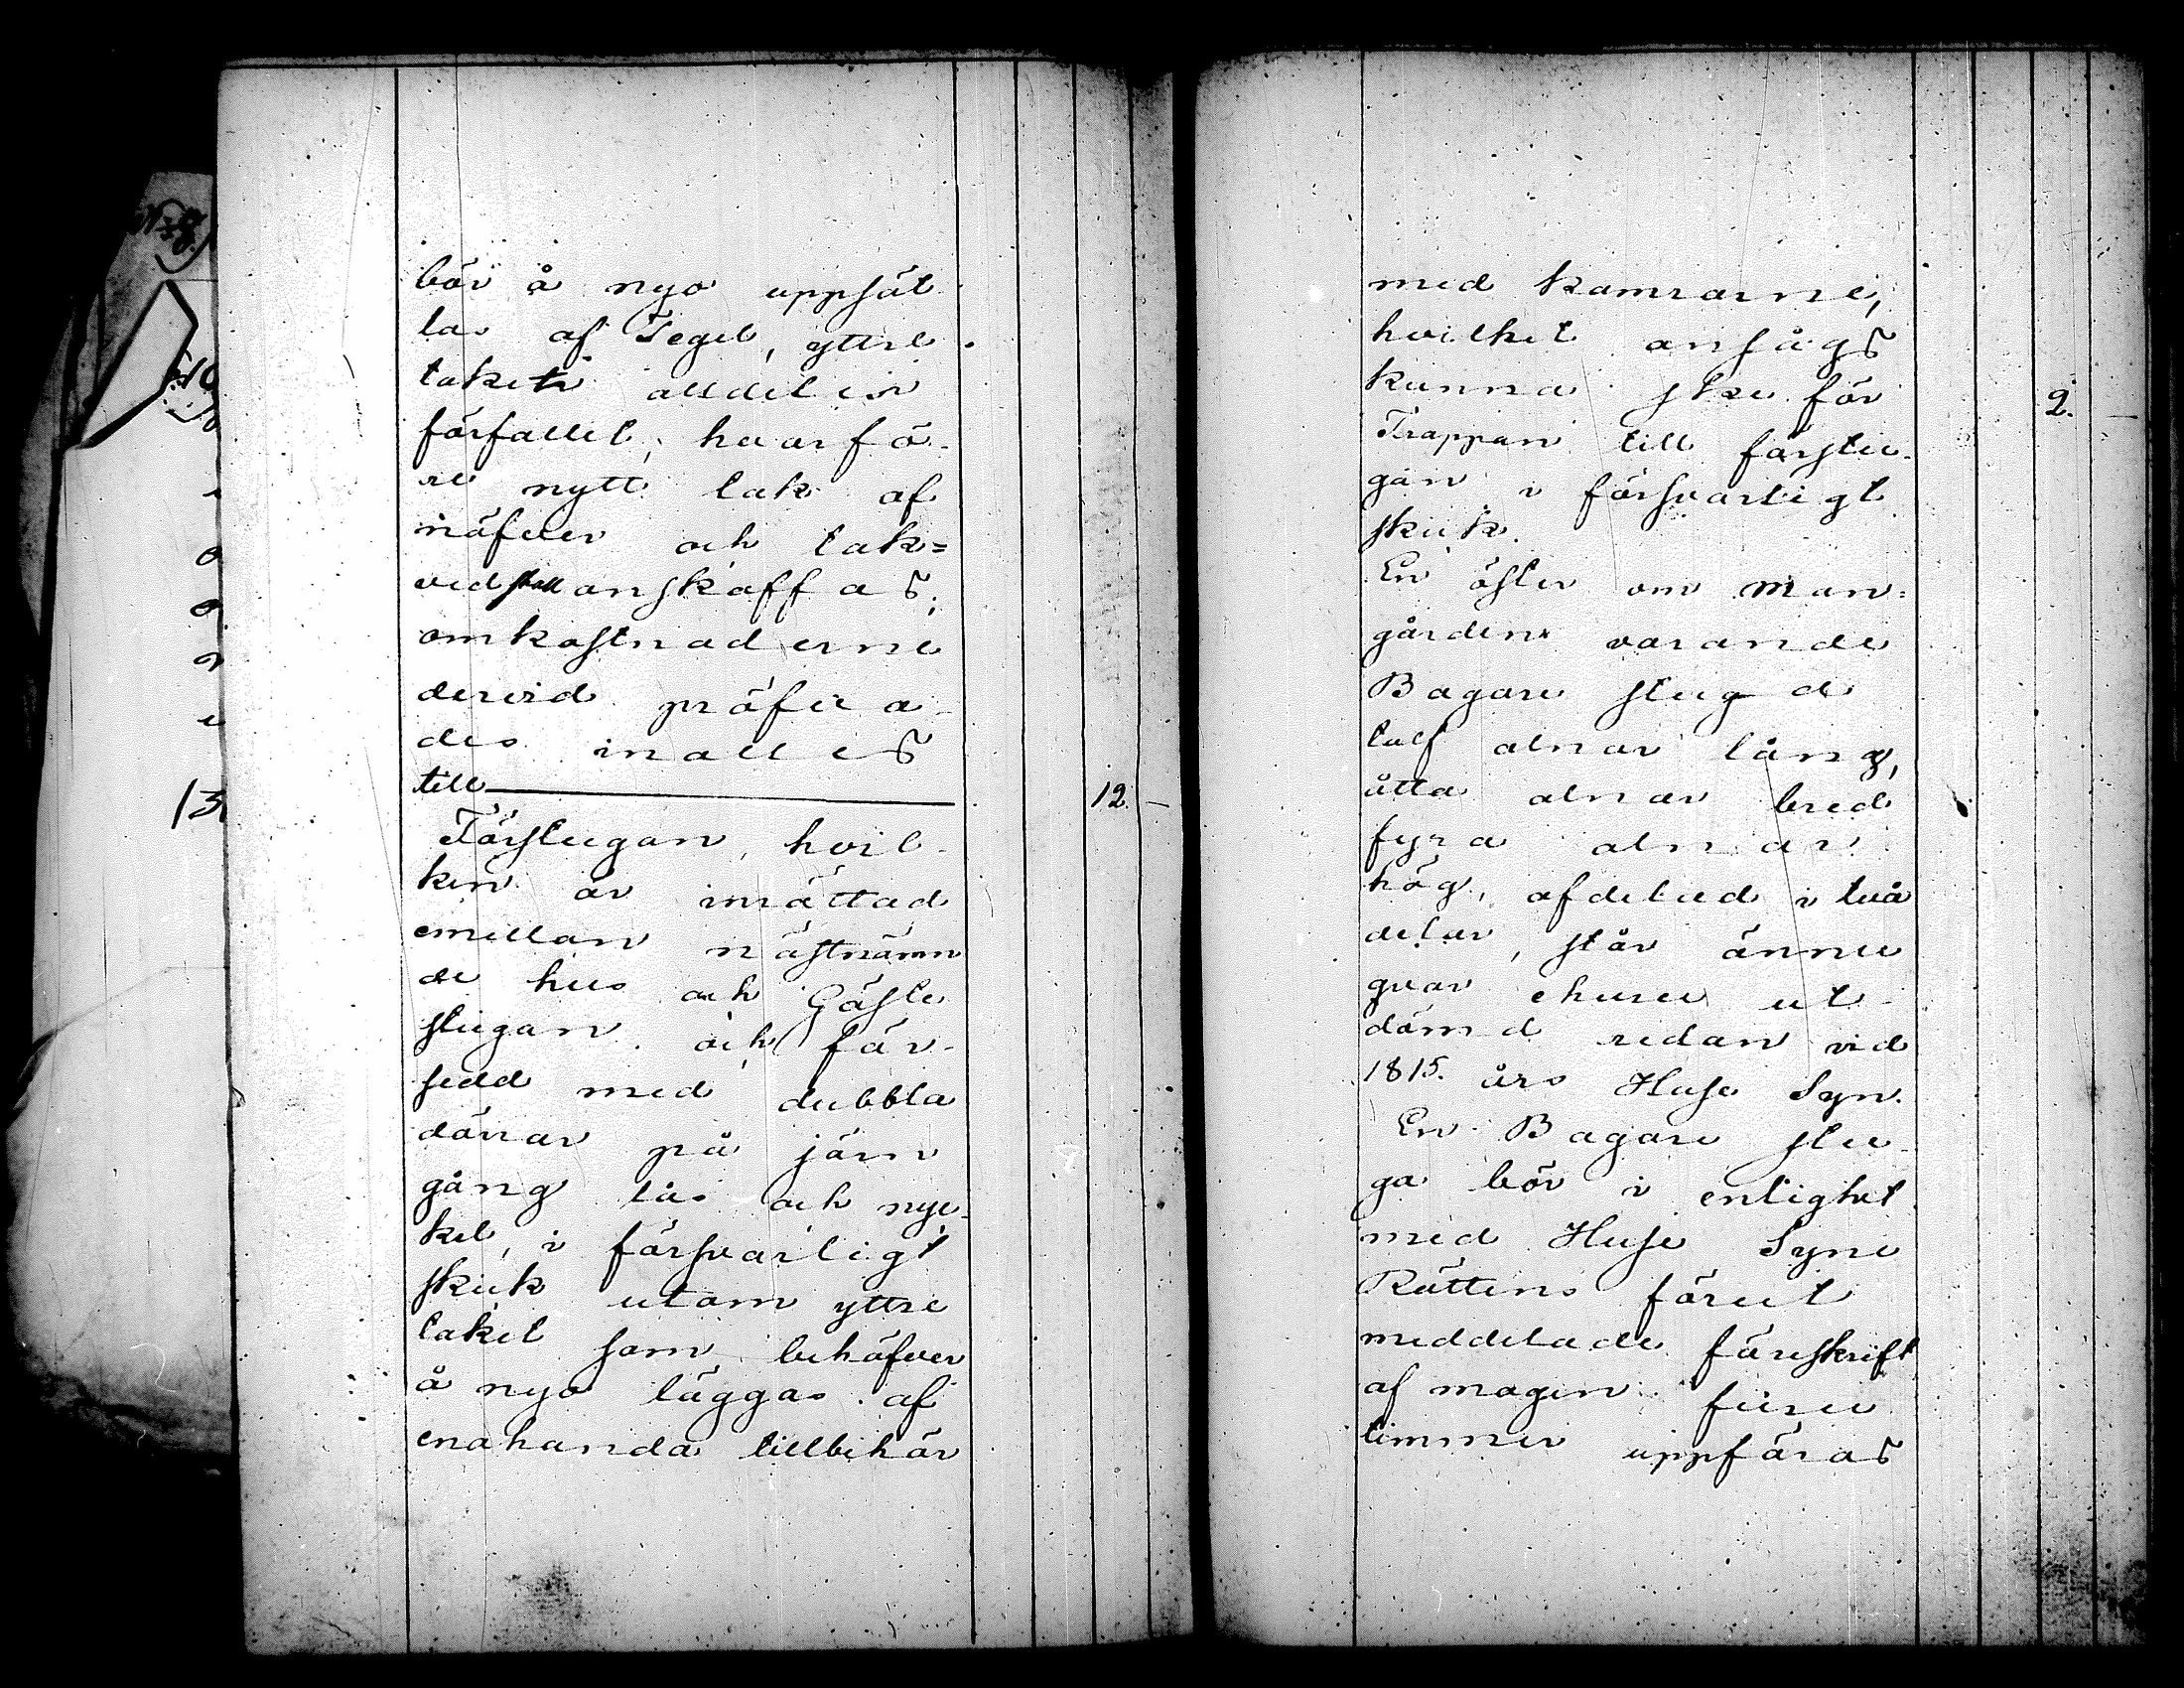 bör å nyo uppsät
tas af Tegel, yttre
taket alldeles
förfallet, hvarfö-
re nytt tak af
näfver och tak=
ved skall anskaffas;
omkostnaderne
dervid pröfva-
des inalles
till 12. —
Förstugan, hvil-
ken är inrättad
emellan nästnämn
de hus och Gäste
stugan och för-
sedd med dubbla
dörrar på järn
gång lås och nyc-
kel, i försvarligt
skick utom yttre
taket som behöfver
å nyo läggas af
enahanda tillbehör
med kamrarne,
hvilket ansågs
kunna ske för 2. —
Trappan till förstu-
gan i försvarligt
skick.
En öster om Man=
gården varande
Bagare stugd
tolf alnar lång,
åtta alnar bred
fyra alnar
hög, afdeled i två
delar, står ännu
qvar ehuru ut-
dömd redan vid
1815. års Huse Syn.
En Bagare stu-
ga bör i enlighet
med Huse Syne
Rättens förut
meddelade föreskrift
af mogen furu
timmer uppföras
13